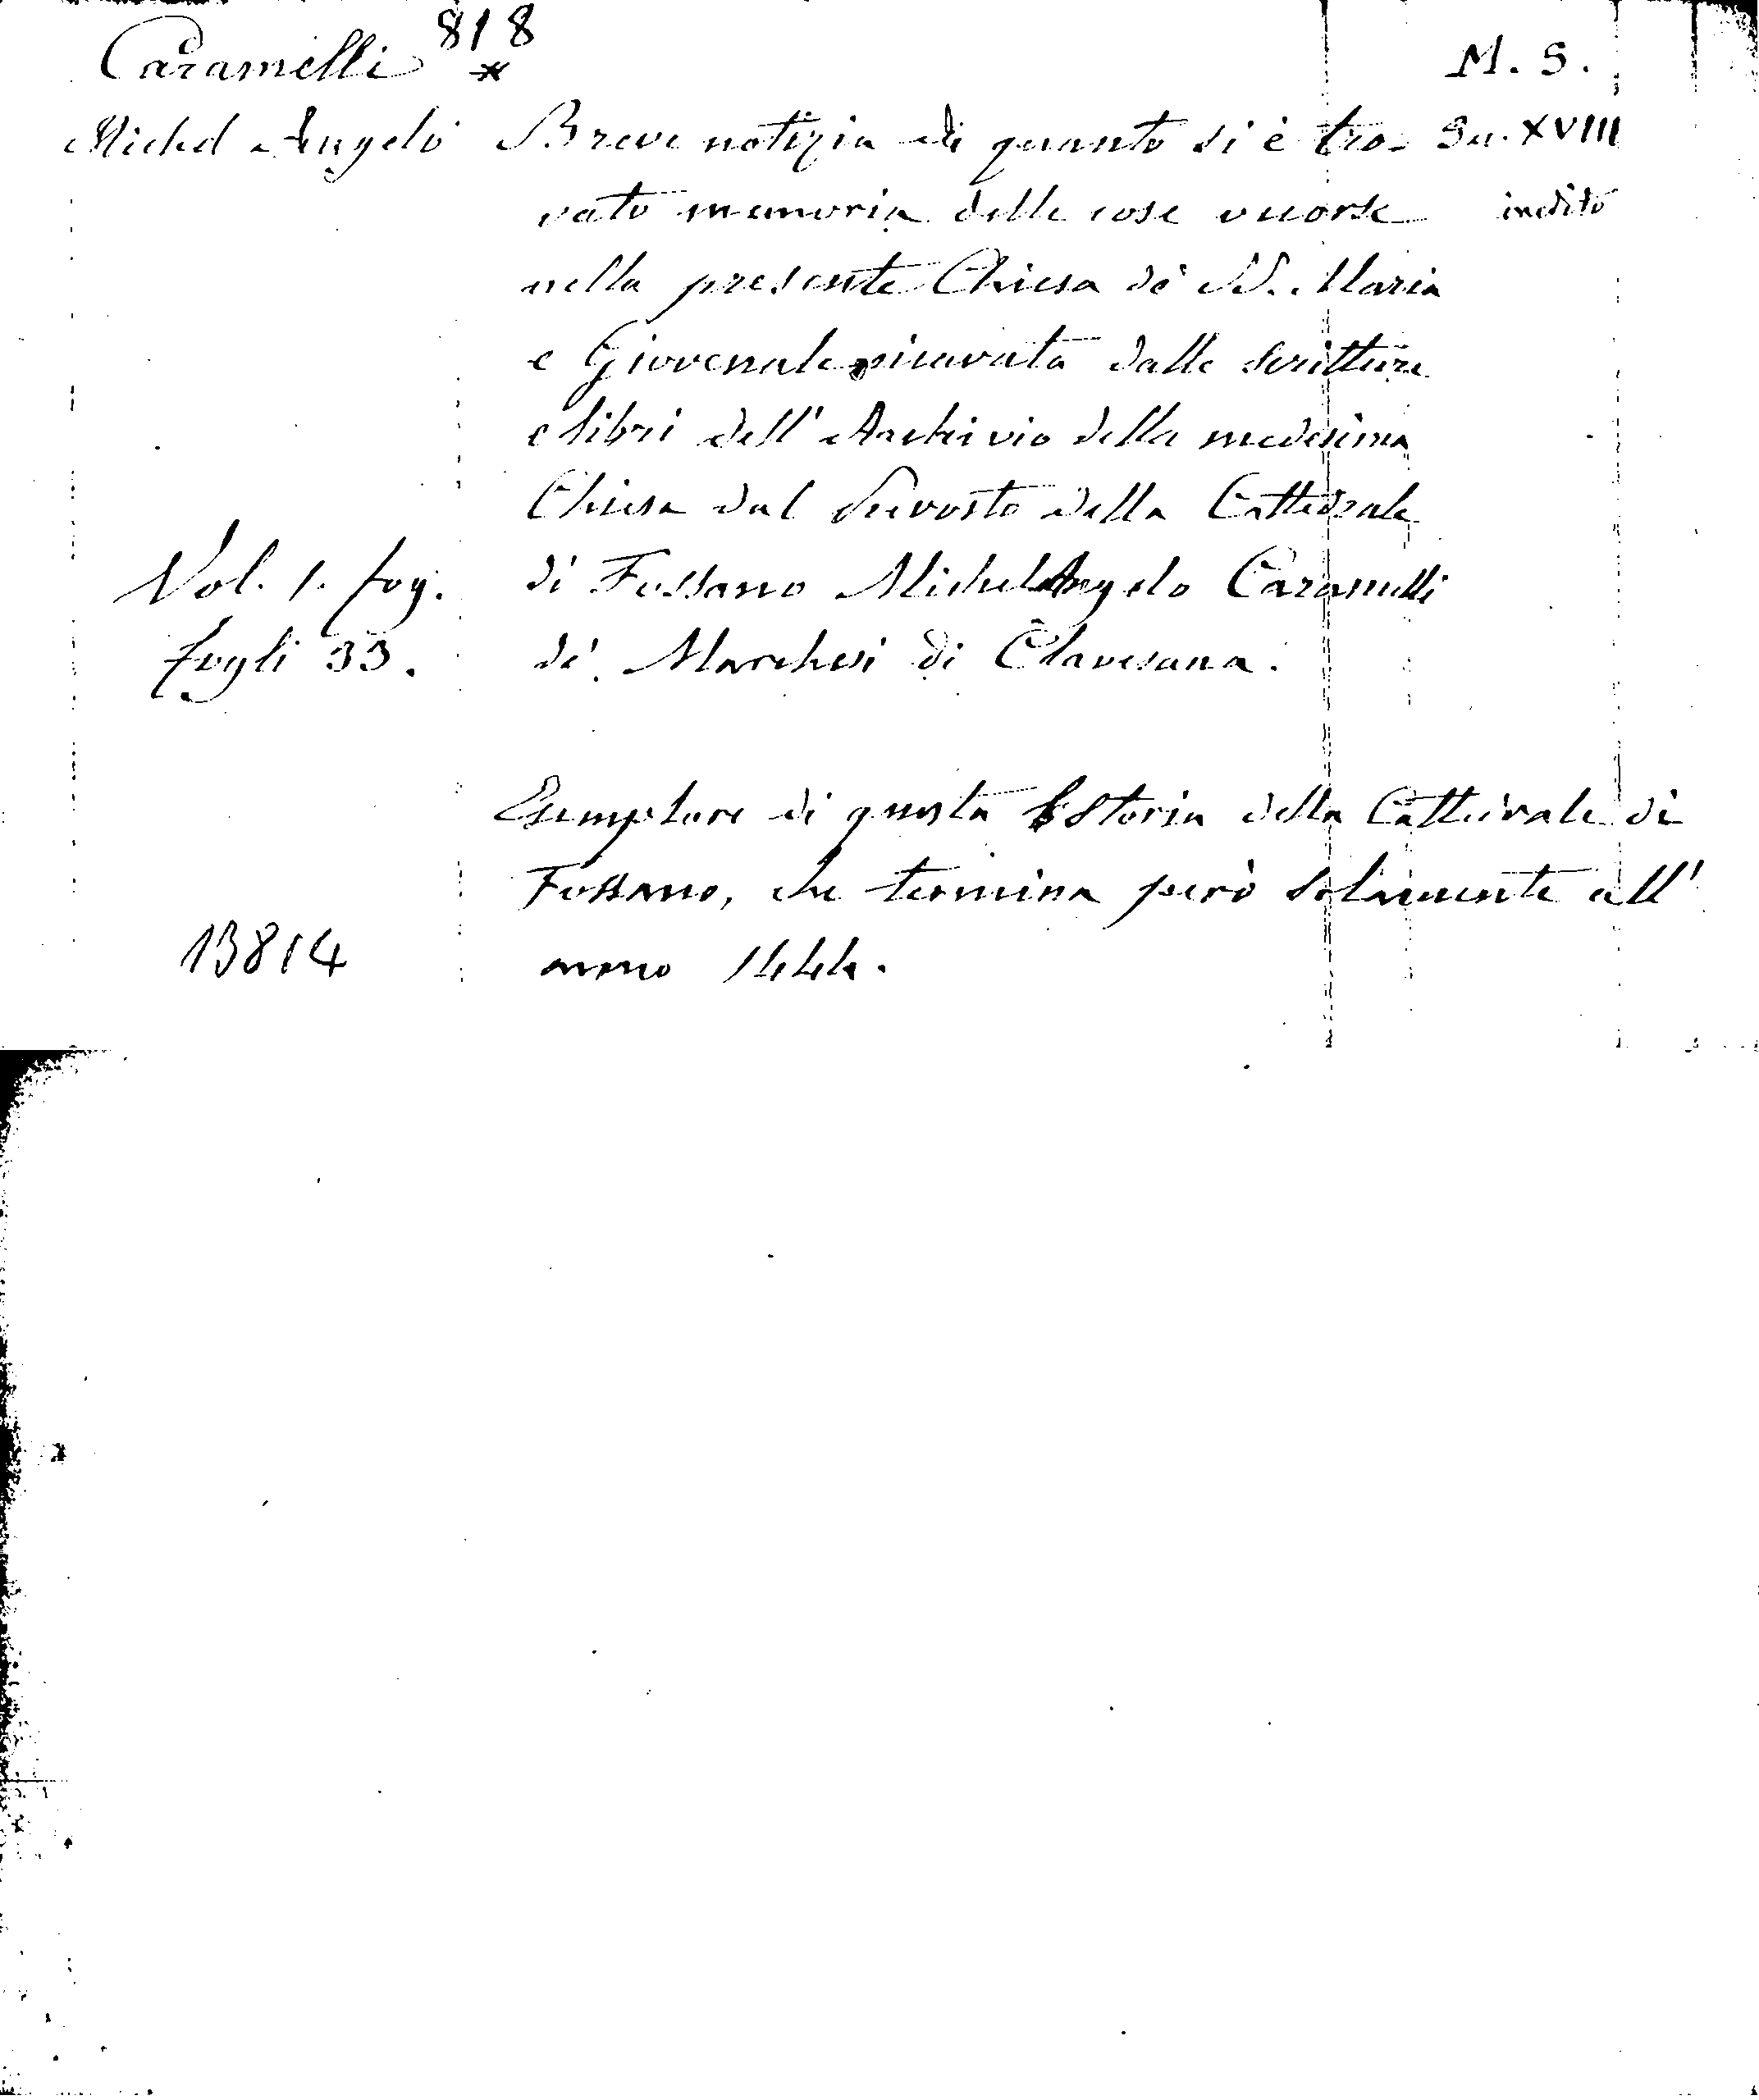 Caramelli 818 *
M. S.
Michel Angelo
Breve notizia di quanto si è tro-
Sec. XVIII
vato memoria delle cose occorse
inedito
nella presente Chiesa de' SS. Maria
e Giovenale ricavata dalle scritture
e libri dell' Archivio della medesima
Chiesa dal Prevosto della Cattedrale
Vol. 1. fog.
di Fossano Michel Angelo Caramelli
fogli 33.
de' Marchesi di Clavesana.
Esemplare di questa Storia della Cattedrale di
Fossano, che termina però solamente all'
13814
anno 1444.